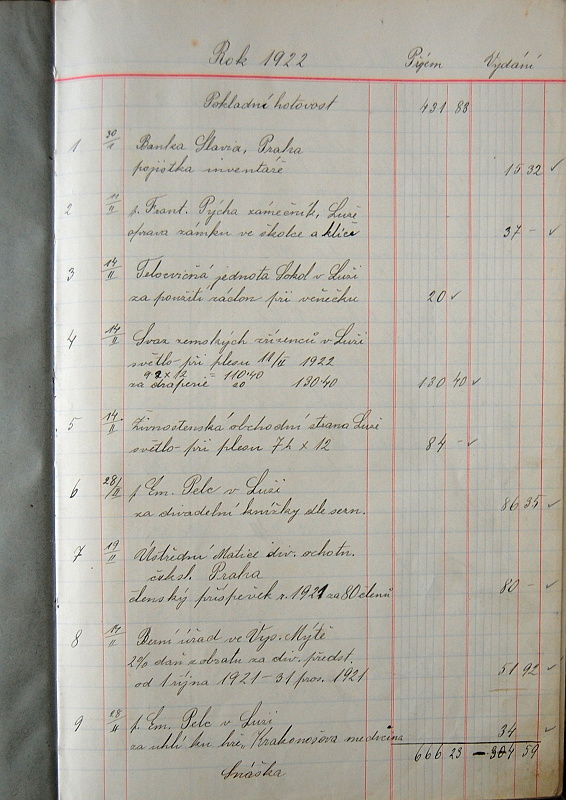 Rok 1922 Příjem Vydání
Pokladní hotovost 431 83
1 30/I Banka Slavia, Praha
pojistka inventáře 15 32 ✓
2 11/II p. Frant. Pýcha zámečník, Luže
oprava zámku ve školce a klíče 37 - ✓
3 14/II Tělocvičná jednota Sokol v Luži
za použití záclon při věnečku 20 ✓
4 14/II Svaz zemských zřízenců v Luži
světlo při plesu 11/II 1922
9·2 x 12 = 110·40
za draperie 20 130·40 130 40 ✓
5 14/II Živnostenská obchodní strana Luži
světlo při plesu 7 h x 12 84 - ✓
6 28/II p Em. Pelc v Luži
za divadelní knížky dle sezn. 86 35 ✓
7 19/II Ústřední Matice div. ochotn.
čsksl. Praha
členský příspěvek r. 1921 za 80 členů 80 - ✓
8 14/II Berní úřad ve Vys. Mýtě
2% daň z obratu za div. předst.
od 1 října 1921 - 31 pros. 1921 51 92 ✓
9 28/II p Em. Pelc v Luži
za uhlí ku hře „Krakonošova medicina 34 ✓
666 23 304 59
Snáška